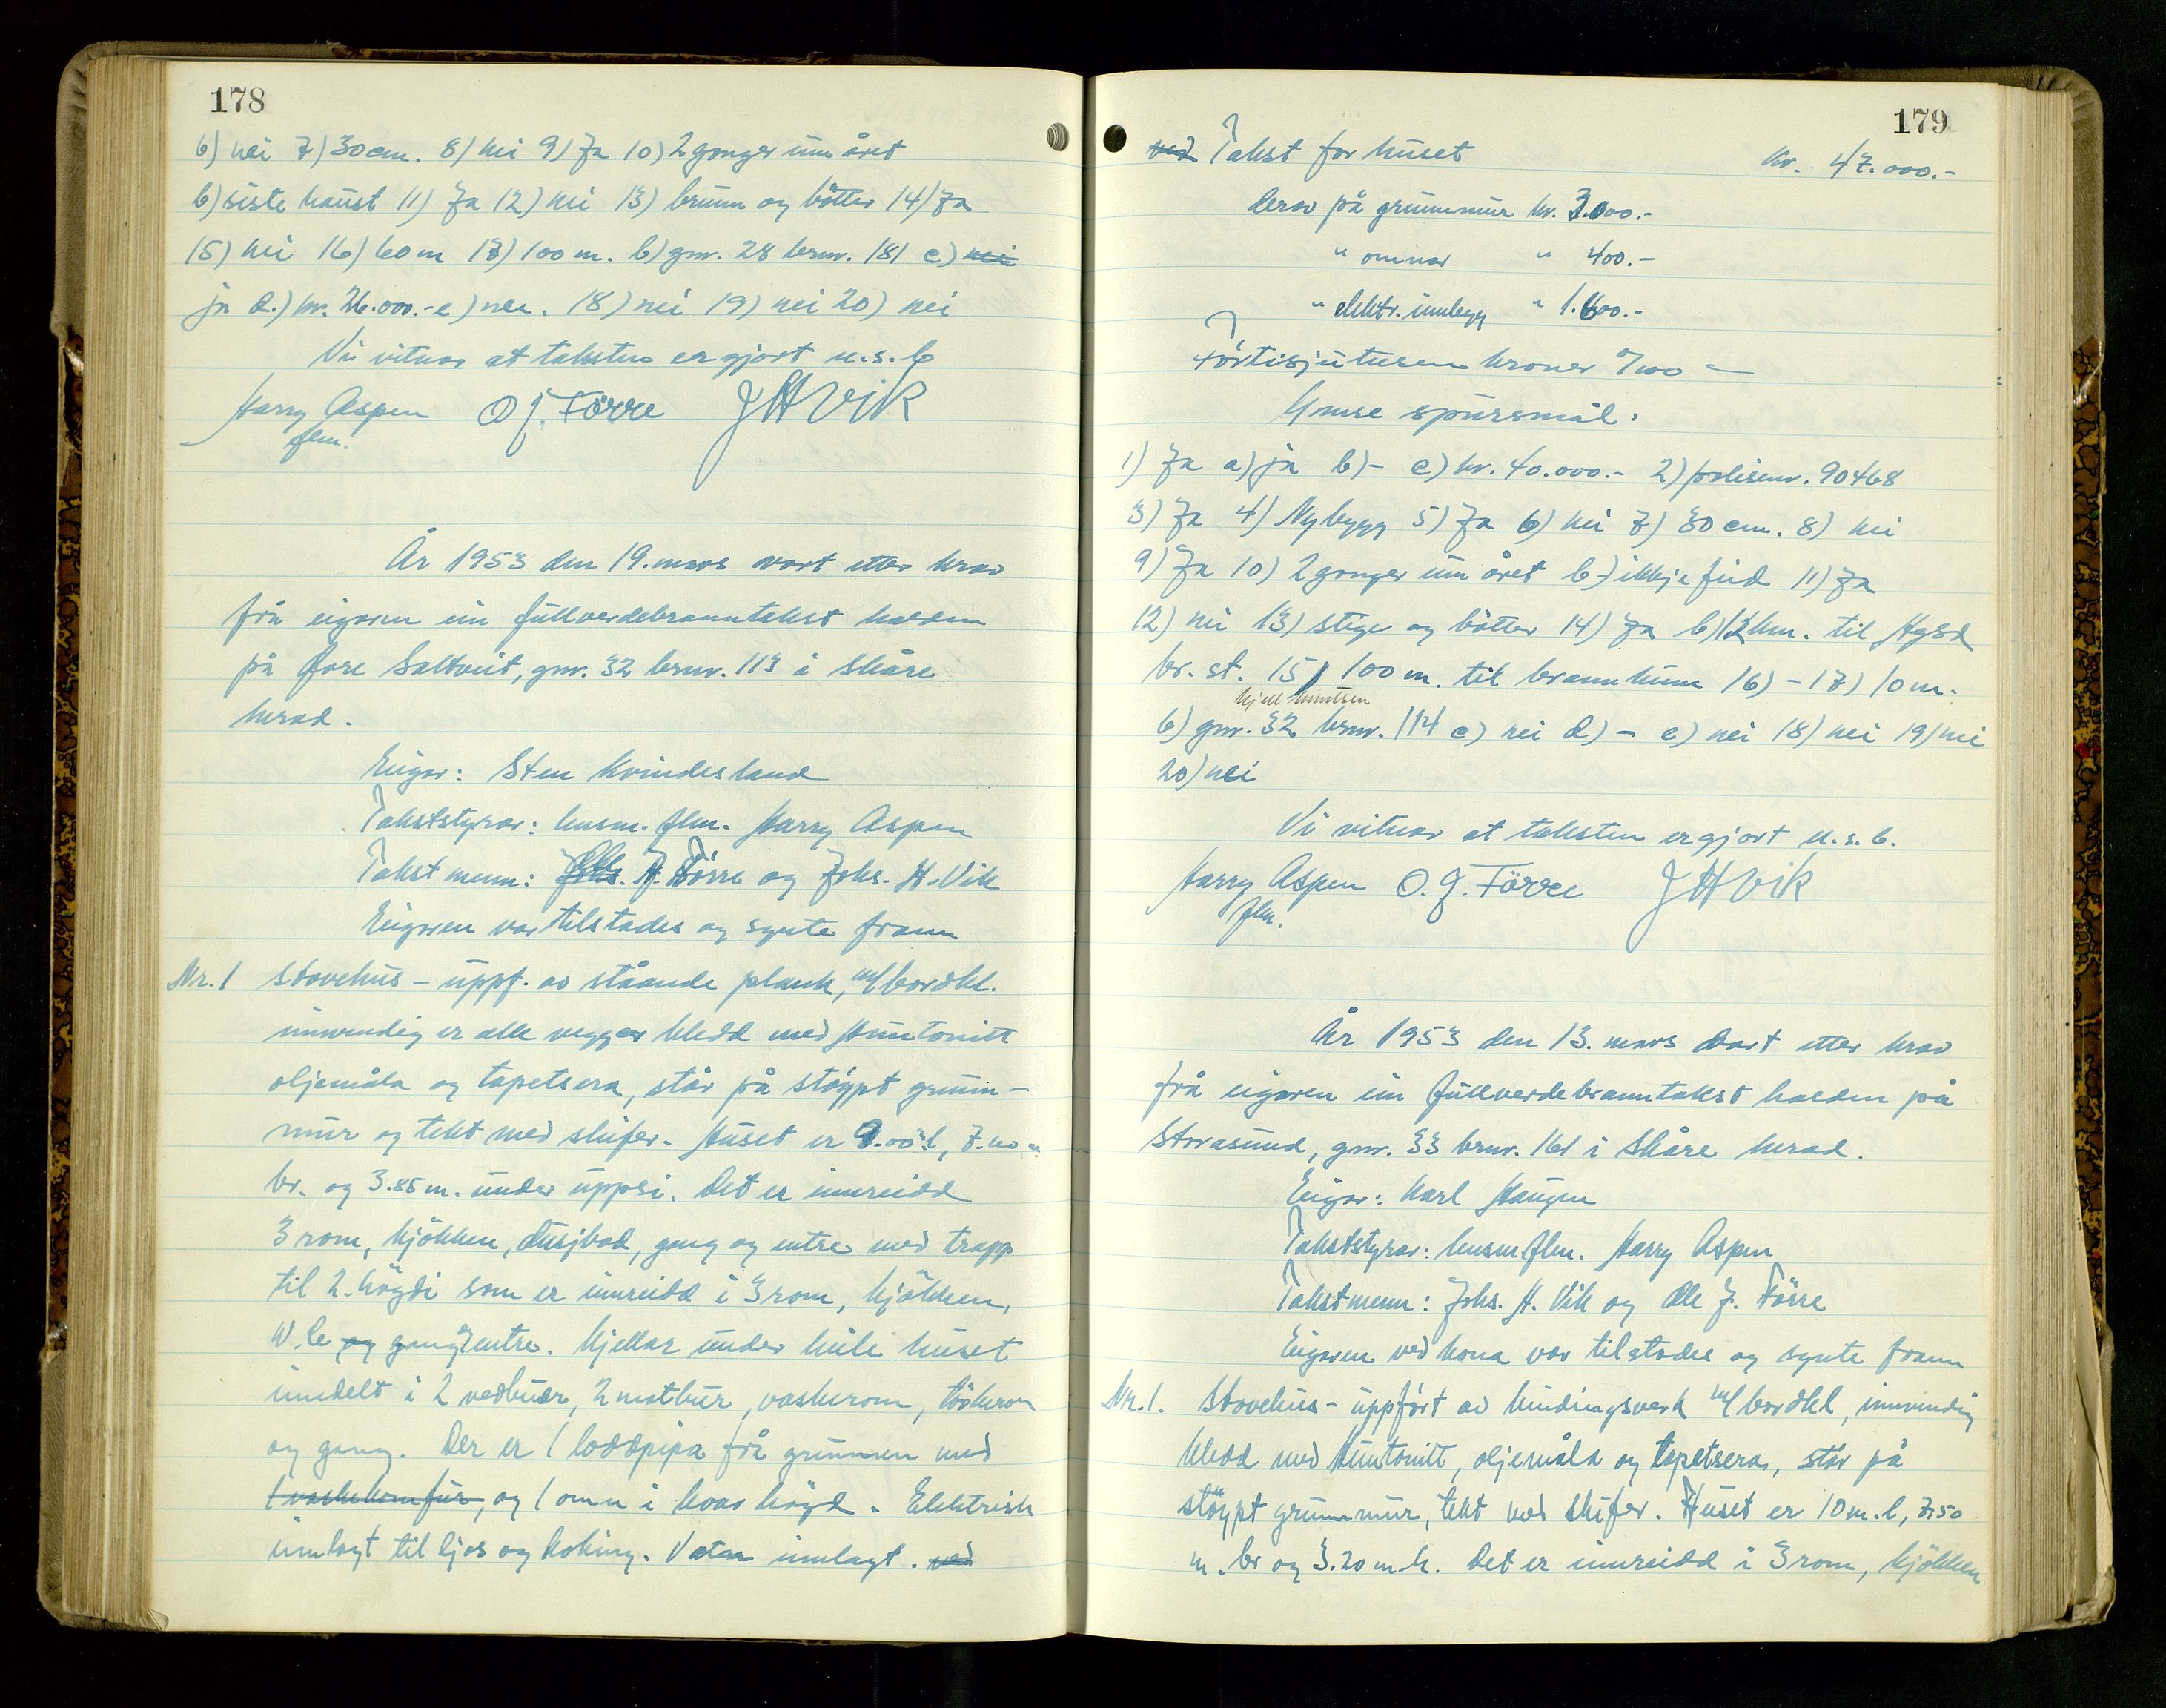 178
6) nei 7) 30 cm. 8) nei 9) Ja 10) 2 gonger um året
b) siste haust 11) Ja 12) nei 13) brunn og bötter 14) Ja
15) nei 16) 60 m 17) 100 m. b) gnr. 28 brnr. 181 c) nei
ja d.) kr. 26.000.- e) nei. 18) nei 19) nei 20) nei
Vi vitnar at taksten er gjort u.s.b
Harry Aspen O J. Förre J H Vik
flm.
År 1953 den 19. mars vart etter krav
frå eigaren ein fullverdebranntakst halden
på Øore Saltveit, gnr. 32 brnr. 113 i Skåre
herad.
Eigar: Sten Kvindesland
Takststyrar: lensm. flm. Harry Aspen
Takstmenn: J. Förre og Johs. H. Vik
Eigaren var tilstades og synte fram
Nr. 1 Stovehus - uppf. av ståande plank, m/bordkl.
innvendig er alle vegger kledd med Huntonitt
oljemåla og tapetsera, står på stöypt grunn-
mur og tekt med skifer. Huset er 9.00 m l, 7.00 m
br. og 3.85 m. under uppsi. Det er innreidd
3 rom, kjökken, dusjbad, gang og entre med trapp
til 2. högdi som er innreidd i 3 rom, kjökken,
W.C og gang entre. Kjellar under heile huset
inndelt i 2 vedbuer, 2 matbur, vaskerom, törkerom
og gang. Der er 1 loddpipa frå grunnen med
1 vaskekomfur, og 1 omn i kvar högd. Elektrisk
innlagt til ljos og koking. Vatn innlagt. ved
179
ved Takst for huset kr. 47.000.-
Derav på grunnmur kr. 3.000.-
" omnar " 400.-
" elektr. innlegg " 1.600.-
Förtisjutusen kroner 0/100 -
Ymse spursmål:
1) Ja a) ja b) - c) kr. 40.000.- 2) polisenr. 90468
3) Ja 4) Nybygg 5) Ja 6) nei 7) 30 cm. 8) nei
9) Ja 10) 2 gonger um året b) ikkje feid 11) Ja
12) nei 13) stige og bötter 14) Ja b) 12 km. til Hgsd
br. st. 15) 100 m. til brannkum 16) - 17) 10 m.
Kjell Knutsen
b) gnr. 32 brnr. 114 c) nei d) - e) nei 18) nei 19) nei
20) nei
Vi vitnar at taksten er gjort u.s.b.
Harry Aspen O. J. Förre J H Vik
flm.
År 1953 den 13. mars vart etter krav
frå eigaren ein fullverdebranntakst halden på
Storasund, gnr. 33 brnr. 161 i Skåre herad.
Eigar: Karl Haugen
Takststyrar: lensm flm. Harry Aspen
Takstmenn: Johs. H. Vik og Ole J. Förre
Eigaren ved kona var tilstades og synte fram
Nr. 1. Stovehus - uppfört av bindingsverk m/bordkl, innvendig
kledd med Huntonitt, oljemåla og tapetsera, står på
stöypt grunnmur, tekt med skifer. Huset er 10 m. l, 7.50
m. br og 3.20 m. h. Det er innreidd i 3 rom, kjökken